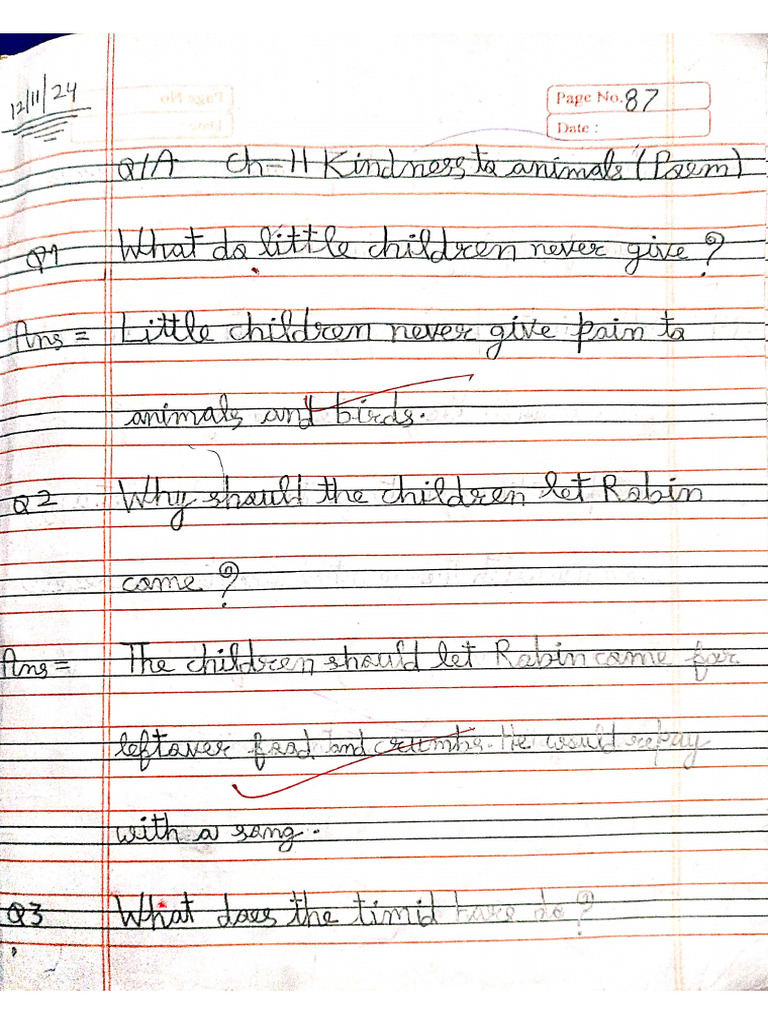 12/11/24
Page No. 87
Date :
Q/A Ch-11 Kindness to animals (Poem)
Q1 What do little children never give?
Ans = Little children never give pain to
animals and birds.
Q2 Why should the children let Robin
come?
Ans = The children should let Robin come for
leftover food and crumbs. He would repay
with a song.
Q3 What does the timid hare do?